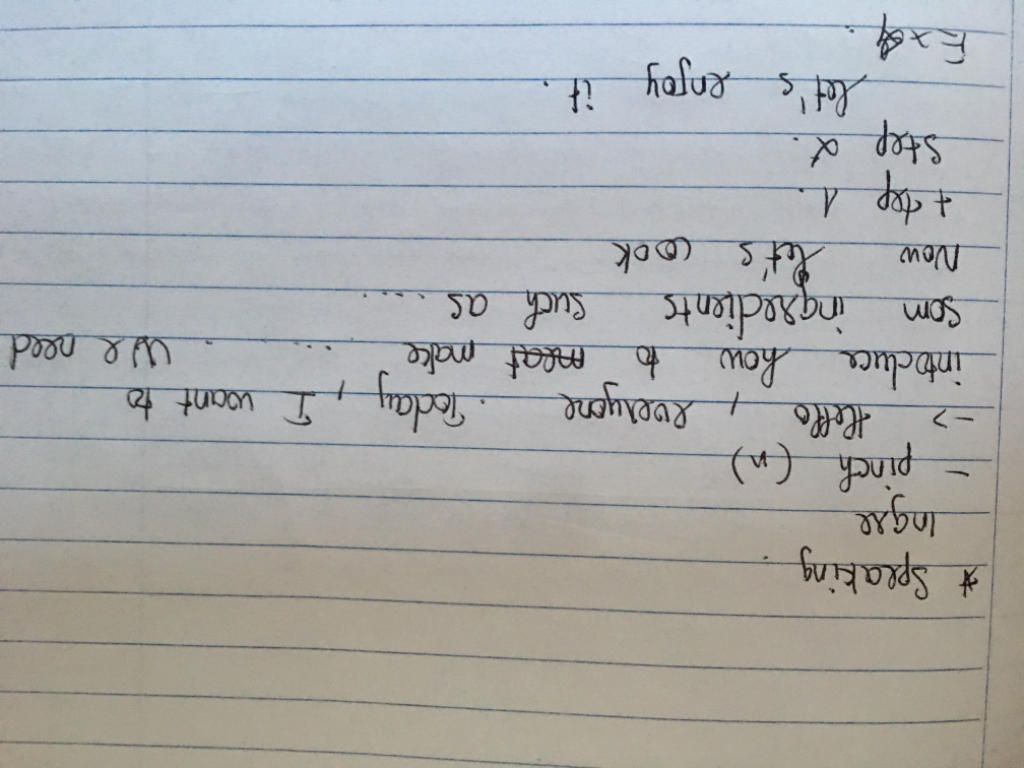 * Speaking.
Ingre
- pinch (n)
-> Hello, everyone. Today, I want to
intoduce how to make ..... We need
som ingredients such as .....
Now let's cook
+ tep 1.
Step 2.
let's enjoy it.